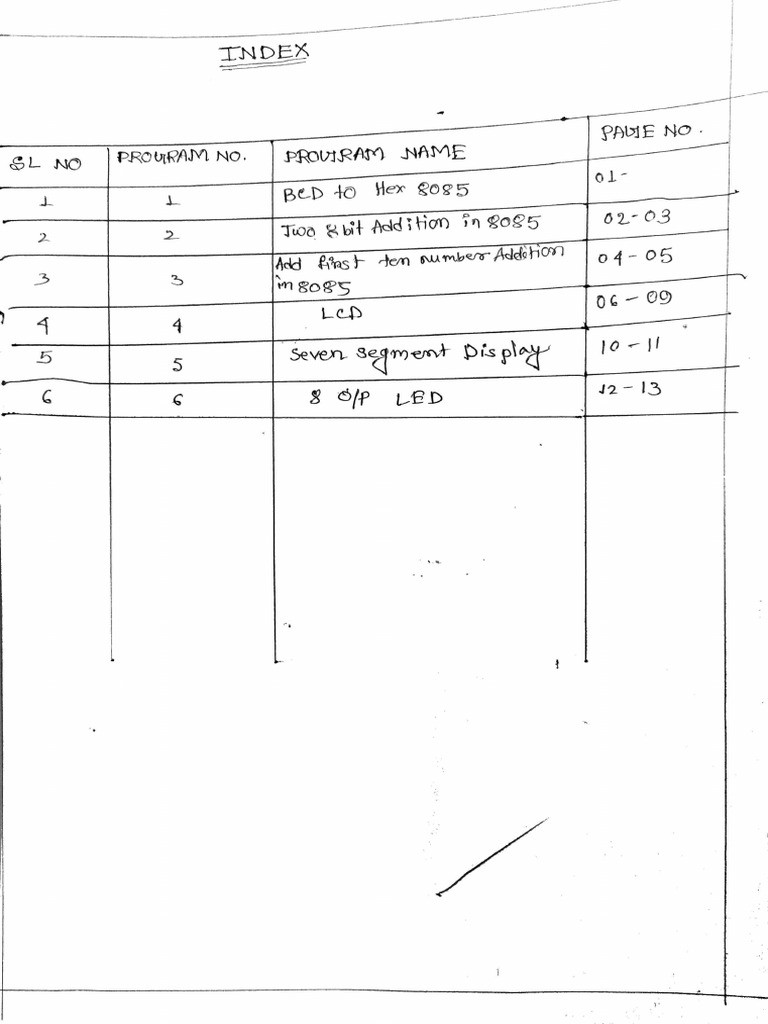 INDEX
SL NO PROGRAM NO. PROGRAM NAME PAGE NO.
1 1 BCD to Hex 8085 01-
2 2 Two 8 bit Addition in 8085 02-03
3 3 Add first ten number Addition 04-05
in 8085
4 4 LCD 06-09
5 5 Seven Segment Display 10-11
6 6 8 O/P LED 12-13